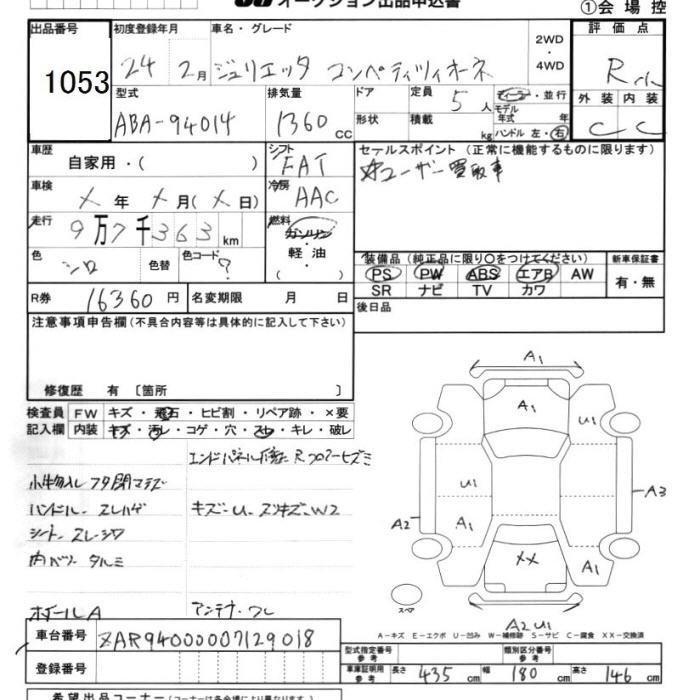 オークション出品申込書
①会場控
出品番号
1053
初度登録年月
24年 2月
車名・グレード
ジュリエッタ コンペティツィオーネ
2WD
・
4WD
評価点
R
外装 内装
C C
型式
ABA-94014
排気量
1360 cc
ドア
形状
定員 5人
積載 kg
ディーラー・並行
モデル
年式 年
ハンドル 左・右
車歴
自家用・( )
シフト
FAT
セールスポイント (正常に機能するものに限ります)
ユーザー買取車
車検
X年 X月(X日)
冷房
AAC
走行
9万7千363km
燃料
ガソリン
軽油
( )
色
シロ
色替
色コード
?
装備品 (純正品に限り○をつけてください)
PS PW ABS エアB AW
SR ナビ TV カワ
新車保証書
有・無
R券 16360円
名変期限 月 日
後日品
注意事項申告欄 (不具合内容等は具体的に記入して下さい)
修復歴 有 〔箇所 〕
検査員
記入欄
FW キズ・飛石・ヒビ割・リペア跡・×要
内装 キズ・汚レ・コゲ・穴・スレ・キレ・破レ
エンドパネル修正 Rフロアーヒズミ
小物入レ フタ閉マラズ
ハンドル-スレハゲ
キズ-U-ズリキズ-W2
シート-スレ-シワ
内ハリ タルミ
ホイールA
アンテナ-ワレ
A1
A1
U1
U1
A1
A2
A3
XX
A1
スペア
A2 U1
A-キズ E-エクボ U-凹み W-補修跡 S-サビ C-腐食 XX-交換済
車台番号
ZAR94000007129018
登録番号
型式指定番号
参考
類別区分番号
参考
車庫証明用
参考
長さ 435 cm 幅 180 cm 高さ 146 cm
希望出品コーナー